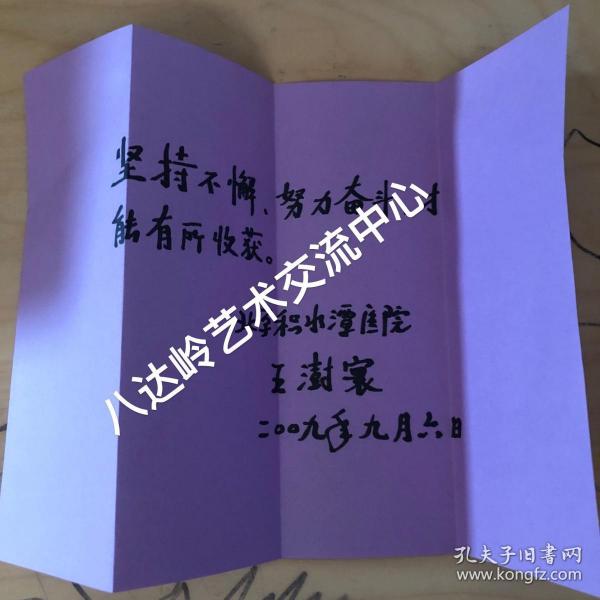 坚持不懈、努力奋斗才
能有所收获。
北京积水潭医院
王澍寰
二〇〇九年九月六日
八达岭艺术交流中心
孔夫子旧书网
www.kongfz.com